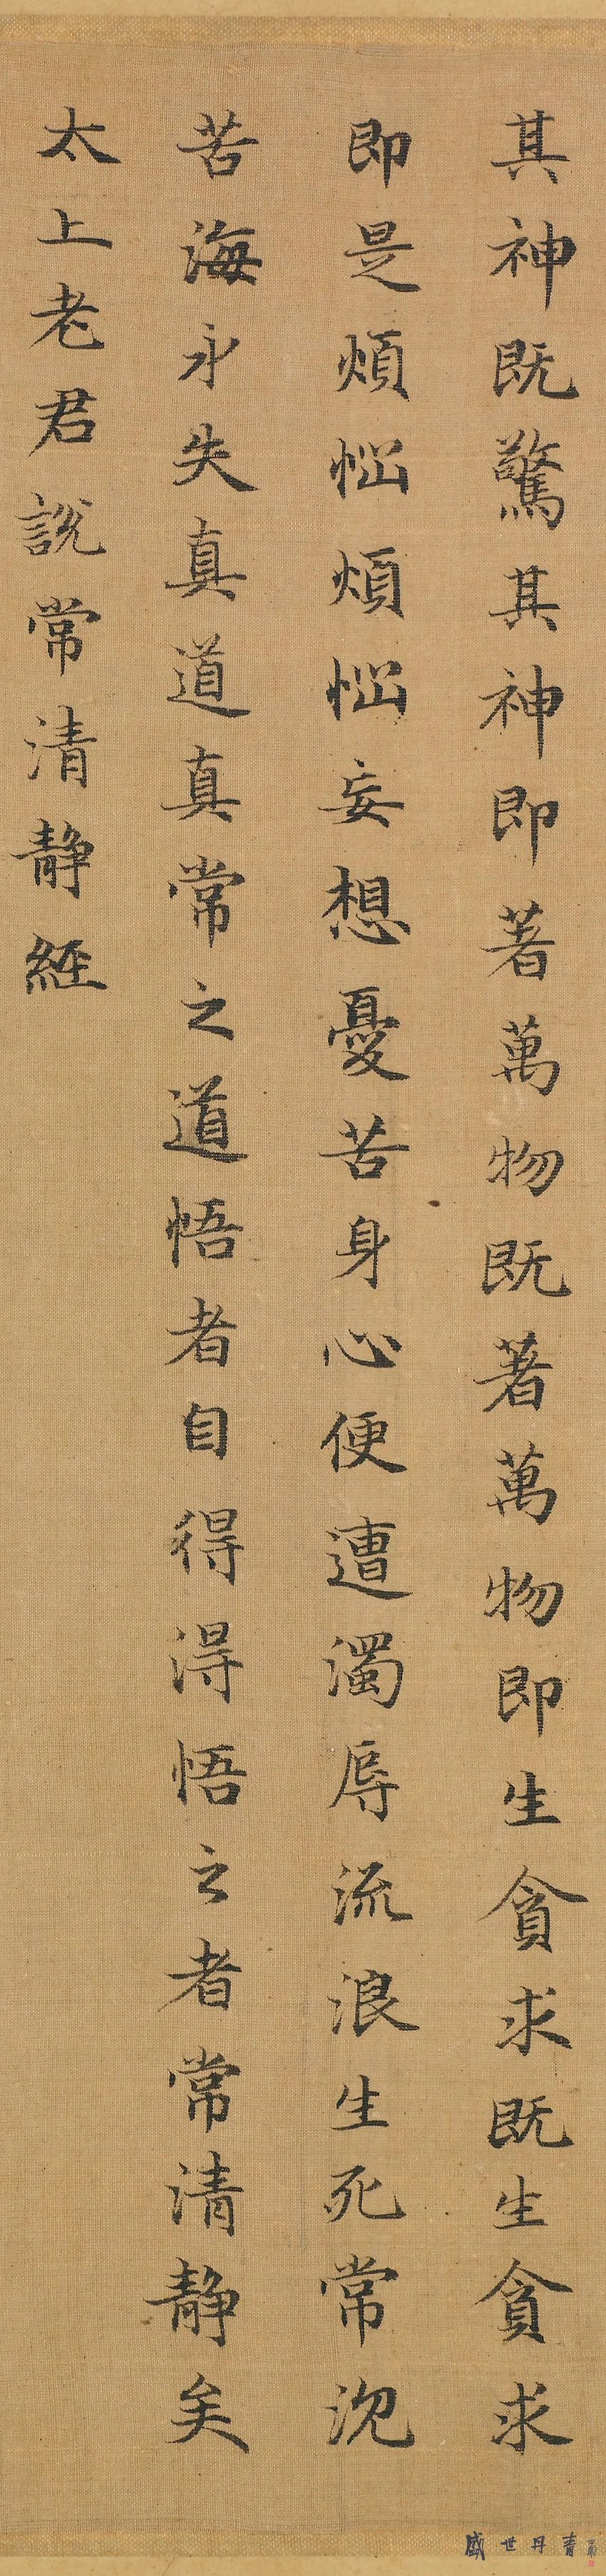 其神既驚其神即著萬物既著萬物即生貪求既生貪求
即是煩惱煩惱妄想憂苦身心便遭濁辱流浪生死常沈
苦海永失真道真常之道悟者自得得悟之者常清靜矣
太上老君說常清靜經
盛世丹青